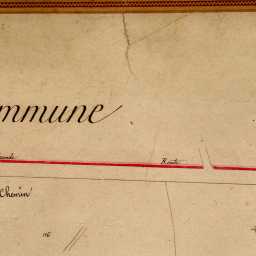 mmune
Route
Chemin
116